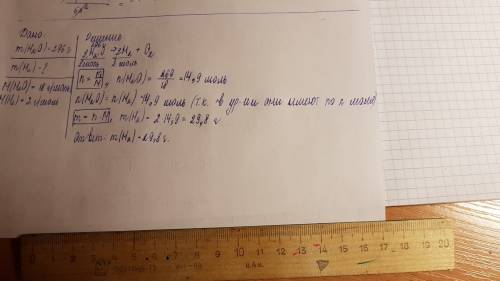 Дано:
m(H₂O)=296г
m(H₂)-?
M(H₂O)=18 г/моль
M(H₂)=2 г/моль
Решение
2H₂O → 2H₂ + O₂
2моль 2 моль
n = m/M, n(H₂O) = 269/18 = 14,9 моль
n(H₂O) = n(H₂) = 14,9 моль (т.к. в ур-ии они имеют по 2 моль)
m = n·M, m(H₂) = 2·14,9 = 29,8 г
Ответ: m(H₂) = 29,8 г.
0 1 2 3 4 5 6 7 8 9 10 11 12 13 14 15 16 17 18 19 20